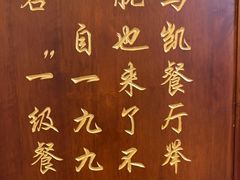 马凯餐厅举
就也来了不
自一九九
名”一级餐